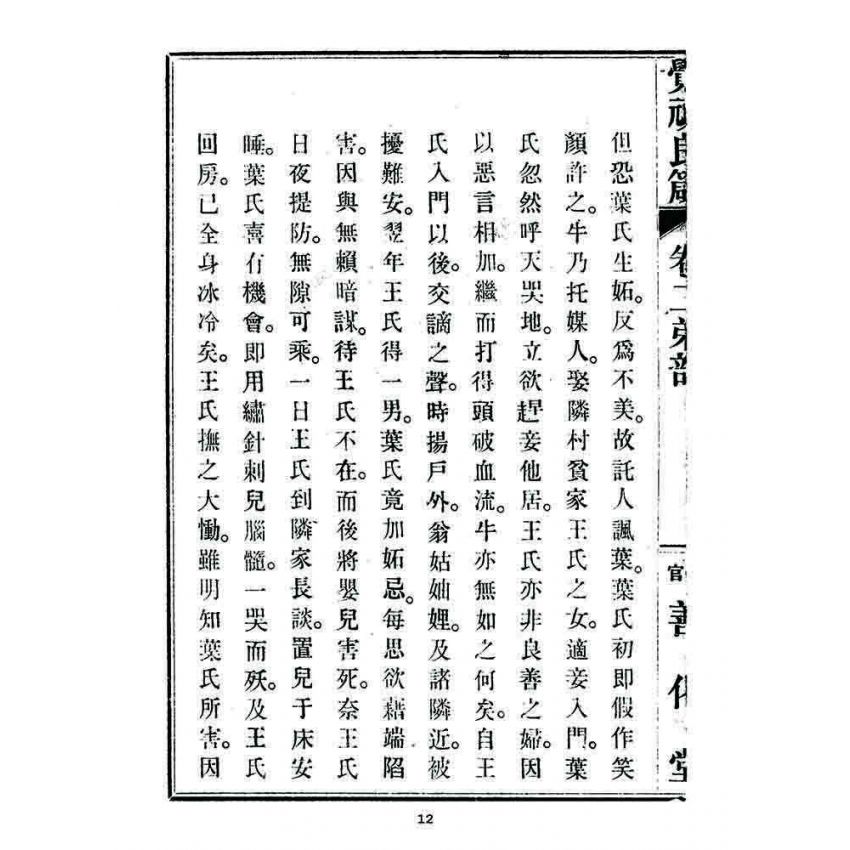 覺頑良箴 卷二弟部 善化堂
但恐葉氏生妬。反爲不美。故託人諷葉。葉氏初即假作笑
顏許之。牛乃托媒人。娶隣村貧家王氏之女。適妾入門。葉
氏忽然呼天哭地。立欲趕妾他居。王氏亦非良善之婦。因
以惡言相加。繼而打得頭破血流。牛亦無如之何矣。自王
氏入門以後。交謫之聲。時揚戶外。翁姑妯娌。及諸隣近。被
擾難安。翌年王氏得一男。葉氏竟加妬忌。每思欲藉端陷
害。因與無賴暗謀。待王氏不在。而後將嬰兒害死。奈王氏
日夜提防。無隙可乘。一日王氏到隣家長談。置兒于床安
睡。葉氏喜有機會。即用繡針刺兒腦髓。一哭而殀。及王氏
回房。已全身冰冷矣。王氏撫之大慟。雖明知葉氏所害。因
12